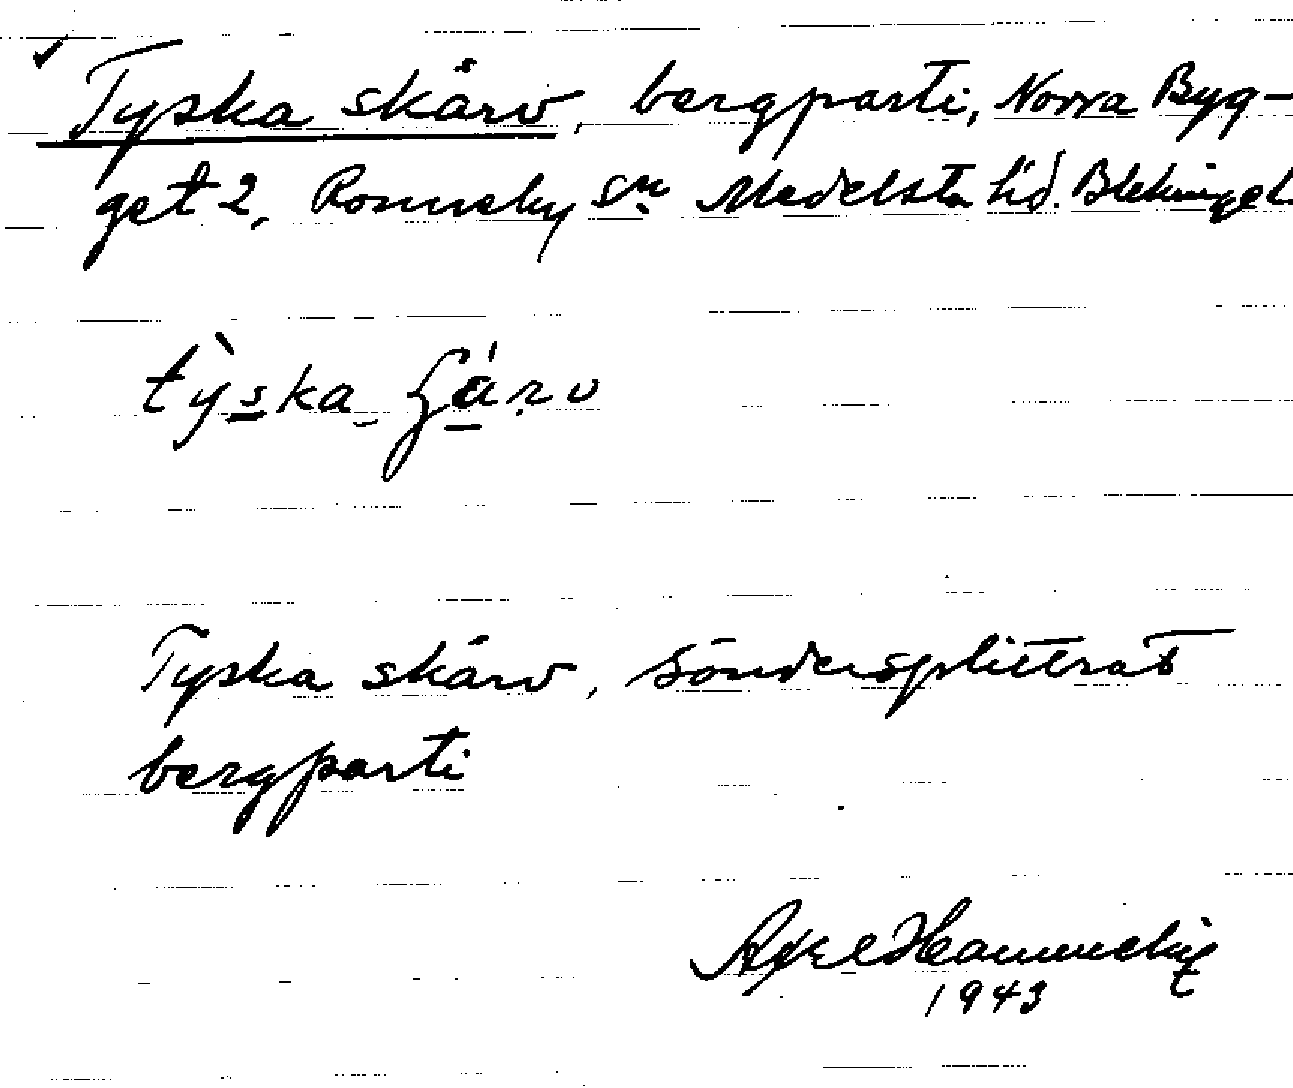 Tyska skärv, bergparti, Norra Byg-
get 2, Ronneby sn Medelsta hd. Blekinge l.
tỳska
Tyska skärv, söndersplittrat
bergparti
Axel
1943